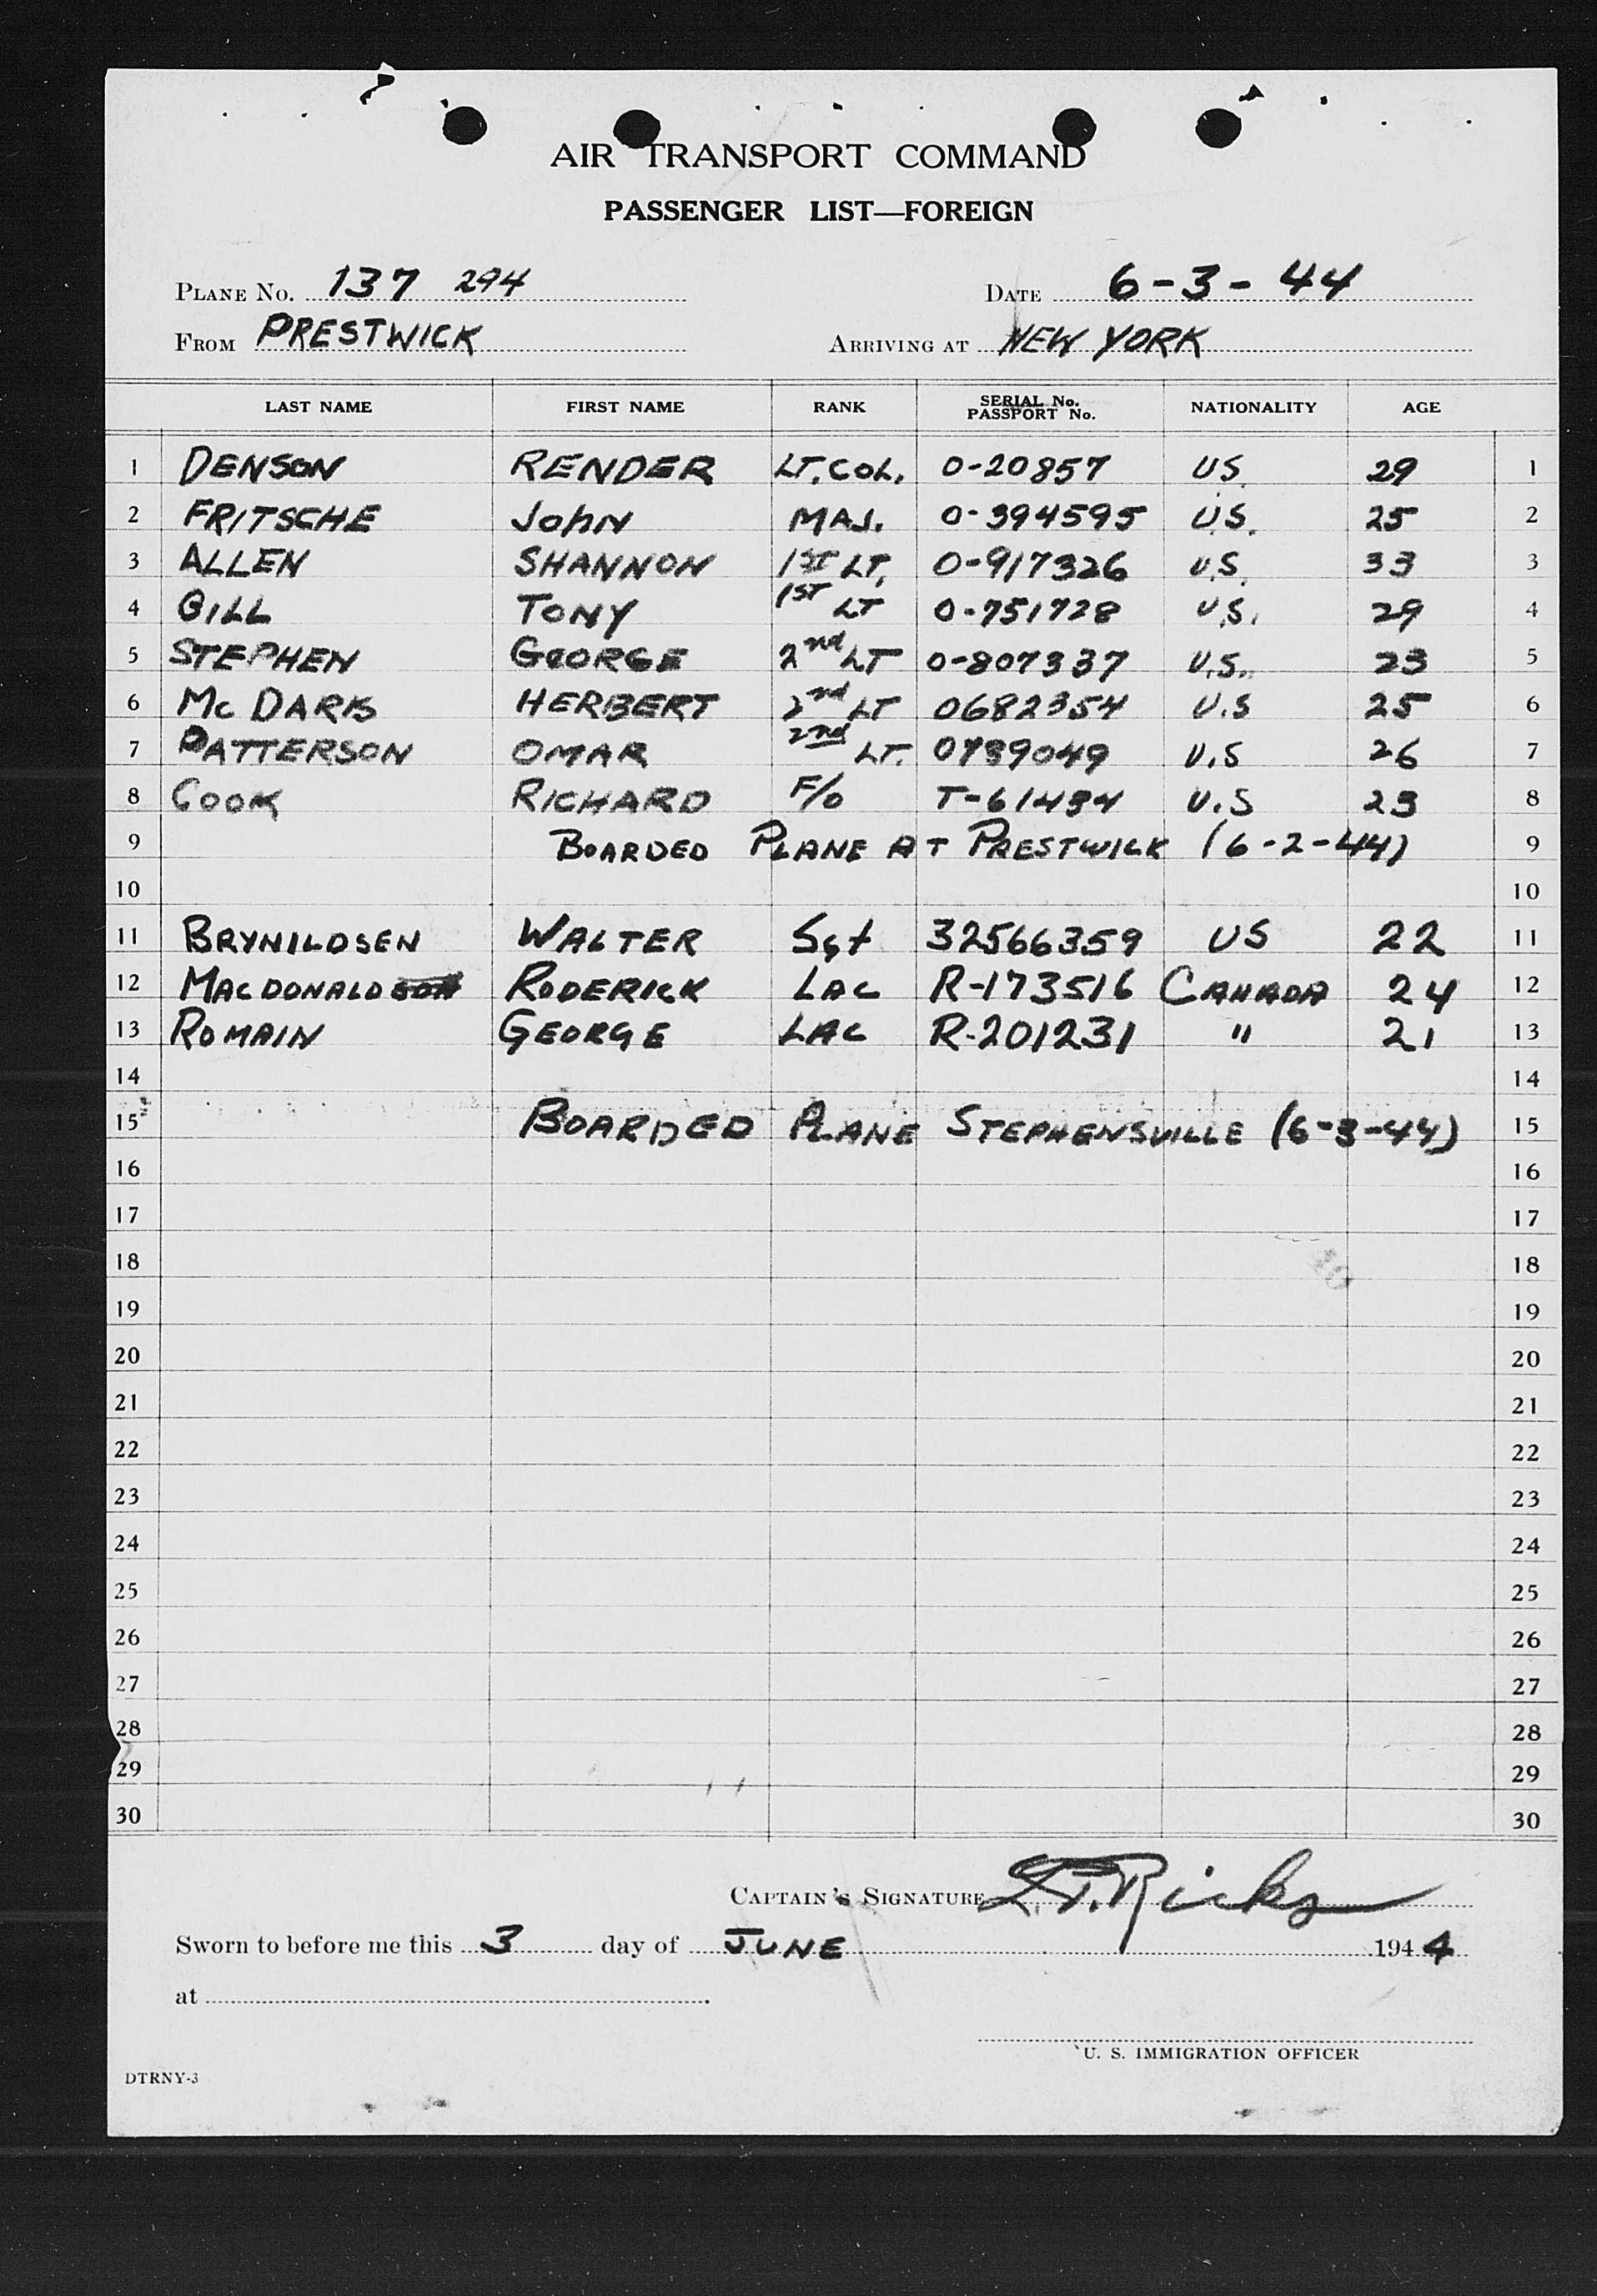 AIR TRANSPORT COMMAND
PASSENGER LIST—FOREIGN
PLANE No. 137 294 DATE 6-3-44
FROM PRESTWICK ARRIVING AT NEW YORK
LAST NAME FIRST NAME RANK SERIAL No. PASSPORT No. NATIONALITY AGE
1 DENSON RENDER LT. COL. O-20857 US. 29 1
2 FRITSCHE JOHN MAJ. O-394595 U.S. 25 2
3 ALLEN SHANNON 1ST LT. O-917326 U.S. 33 3
4 GILL TONY 1ST LT O-751728 U.S. 29 4
5 STEPHEN GEORGE 2nd LT O-807337 U.S. 23 5
6 Mc HERBERT 2nd LT 0682354 U.S 25 6
7 PATTERSON OMAR 2nd LT. 0789049 U.S 26 7
8 COOK RICHARD F/O T-61434 U.S 23 8
9 BOARDED PLANE AT PRESTWICK (6-2-44) 9
10 10
11 BRYNILDSEN WALTER Sgt 32566359 US 22 11
12 MACDONALD RODERICK LAC R-173516 CANADA 24 12
13 ROMAIN GEORGE LAC R-201231 " 21 13
14 14
15 BOARDED PLANE STEPHENSVILLE (6-3-44) 15
16 16
17 17
18 18
19 19
20 20
21 21
22 22
23 23
24 24
25 25
26 26
27 27
28 28
29 29
30 30
CAPTAIN'S SIGNATURE Ricks
Sworn to before me this 3 day of JUNE 1944
at
U. S. IMMIGRATION OFFICER
DTRNY-3